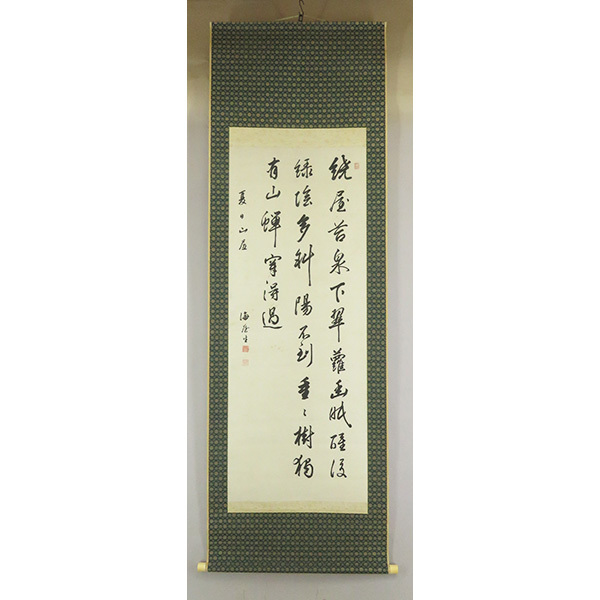 繞屋苔泉下翠蘿幽眠醒後
緑陰多斜陽不到重々樹獨
有山蟬穿得過
夏日山居
海屋生